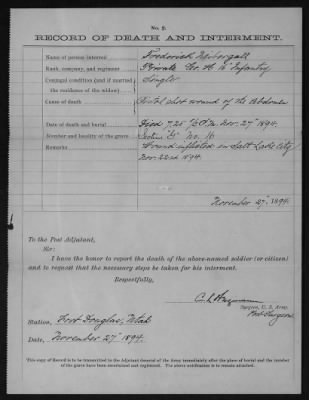 No. 2.
RECORD OF DEATH AND INTERMENT.
Name of person interred Frederick
Rank, company, and regiment Private Co. H. 16" Infantry,
Conjugal condition (and if married, Single
the residence of the widow)
Cause of death Pistol shot wound of the Abdomen
Date of death and burial Died 7.25 P.M. Nov. 27" 1894.
Number and locality of the grave Section "C" No. 16
Remarks Wound inflicted in Salt Lake City
Nov. 22nd 1894.
November 27" 1894.
To the Post Adjutant,
Sir:
I have the honor to report the death of the above-named soldier (or citizen)
and to request that the necessary steps be taken for his interment.
Respectfully,
Surgeon, U. S. Army.
Post Surgeon
Station, Fort Douglas, Utah
Date, November 27" 1894.
This copy of Record is to be transmitted to the Adjutant General of the Army immediately after the place of burial and the number
of the grave have been ascertained and registered. The above notification is to remain attached.